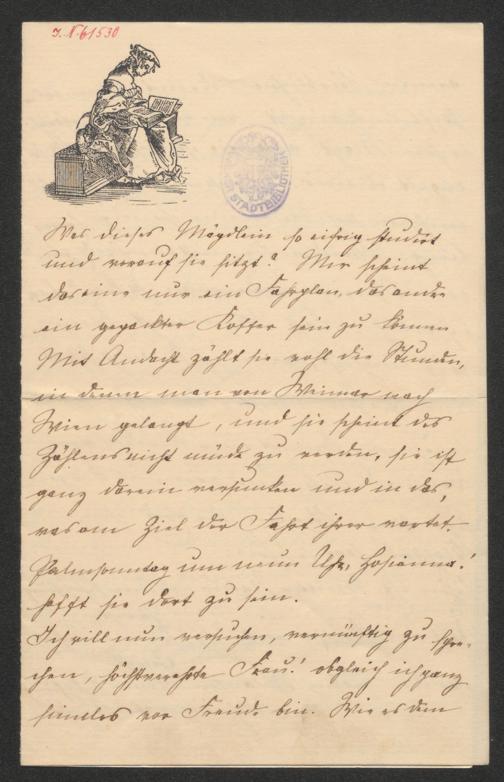 J.N. 61530
STADTBIBLIOTHEK
Was dieses Mägdlein so eifrig studirt
und worauf sie sitzt? Mir scheint
das eine nur ein Fahrplan, das andre
ein gepackter Koffer sein zu können
Mit Andacht zählt sie wohl die Stunden,
in denen man von Weimar nach
Wien gelangt, und sie scheint des
Zählens nicht müde zu werden, sie ist
ganz darein versunken und in das,
was am Ziel der Fahrt ihrer wartet.
Palmsonntag um neun Uhr, Hosianna!
hofft sie dort zu sein.
Ich will nun versuchen, vernünftig zu spre-
chen, höchstverehrte Frau! obgleich ich ganz
sinnlos vor Freude bin. Wie es dem